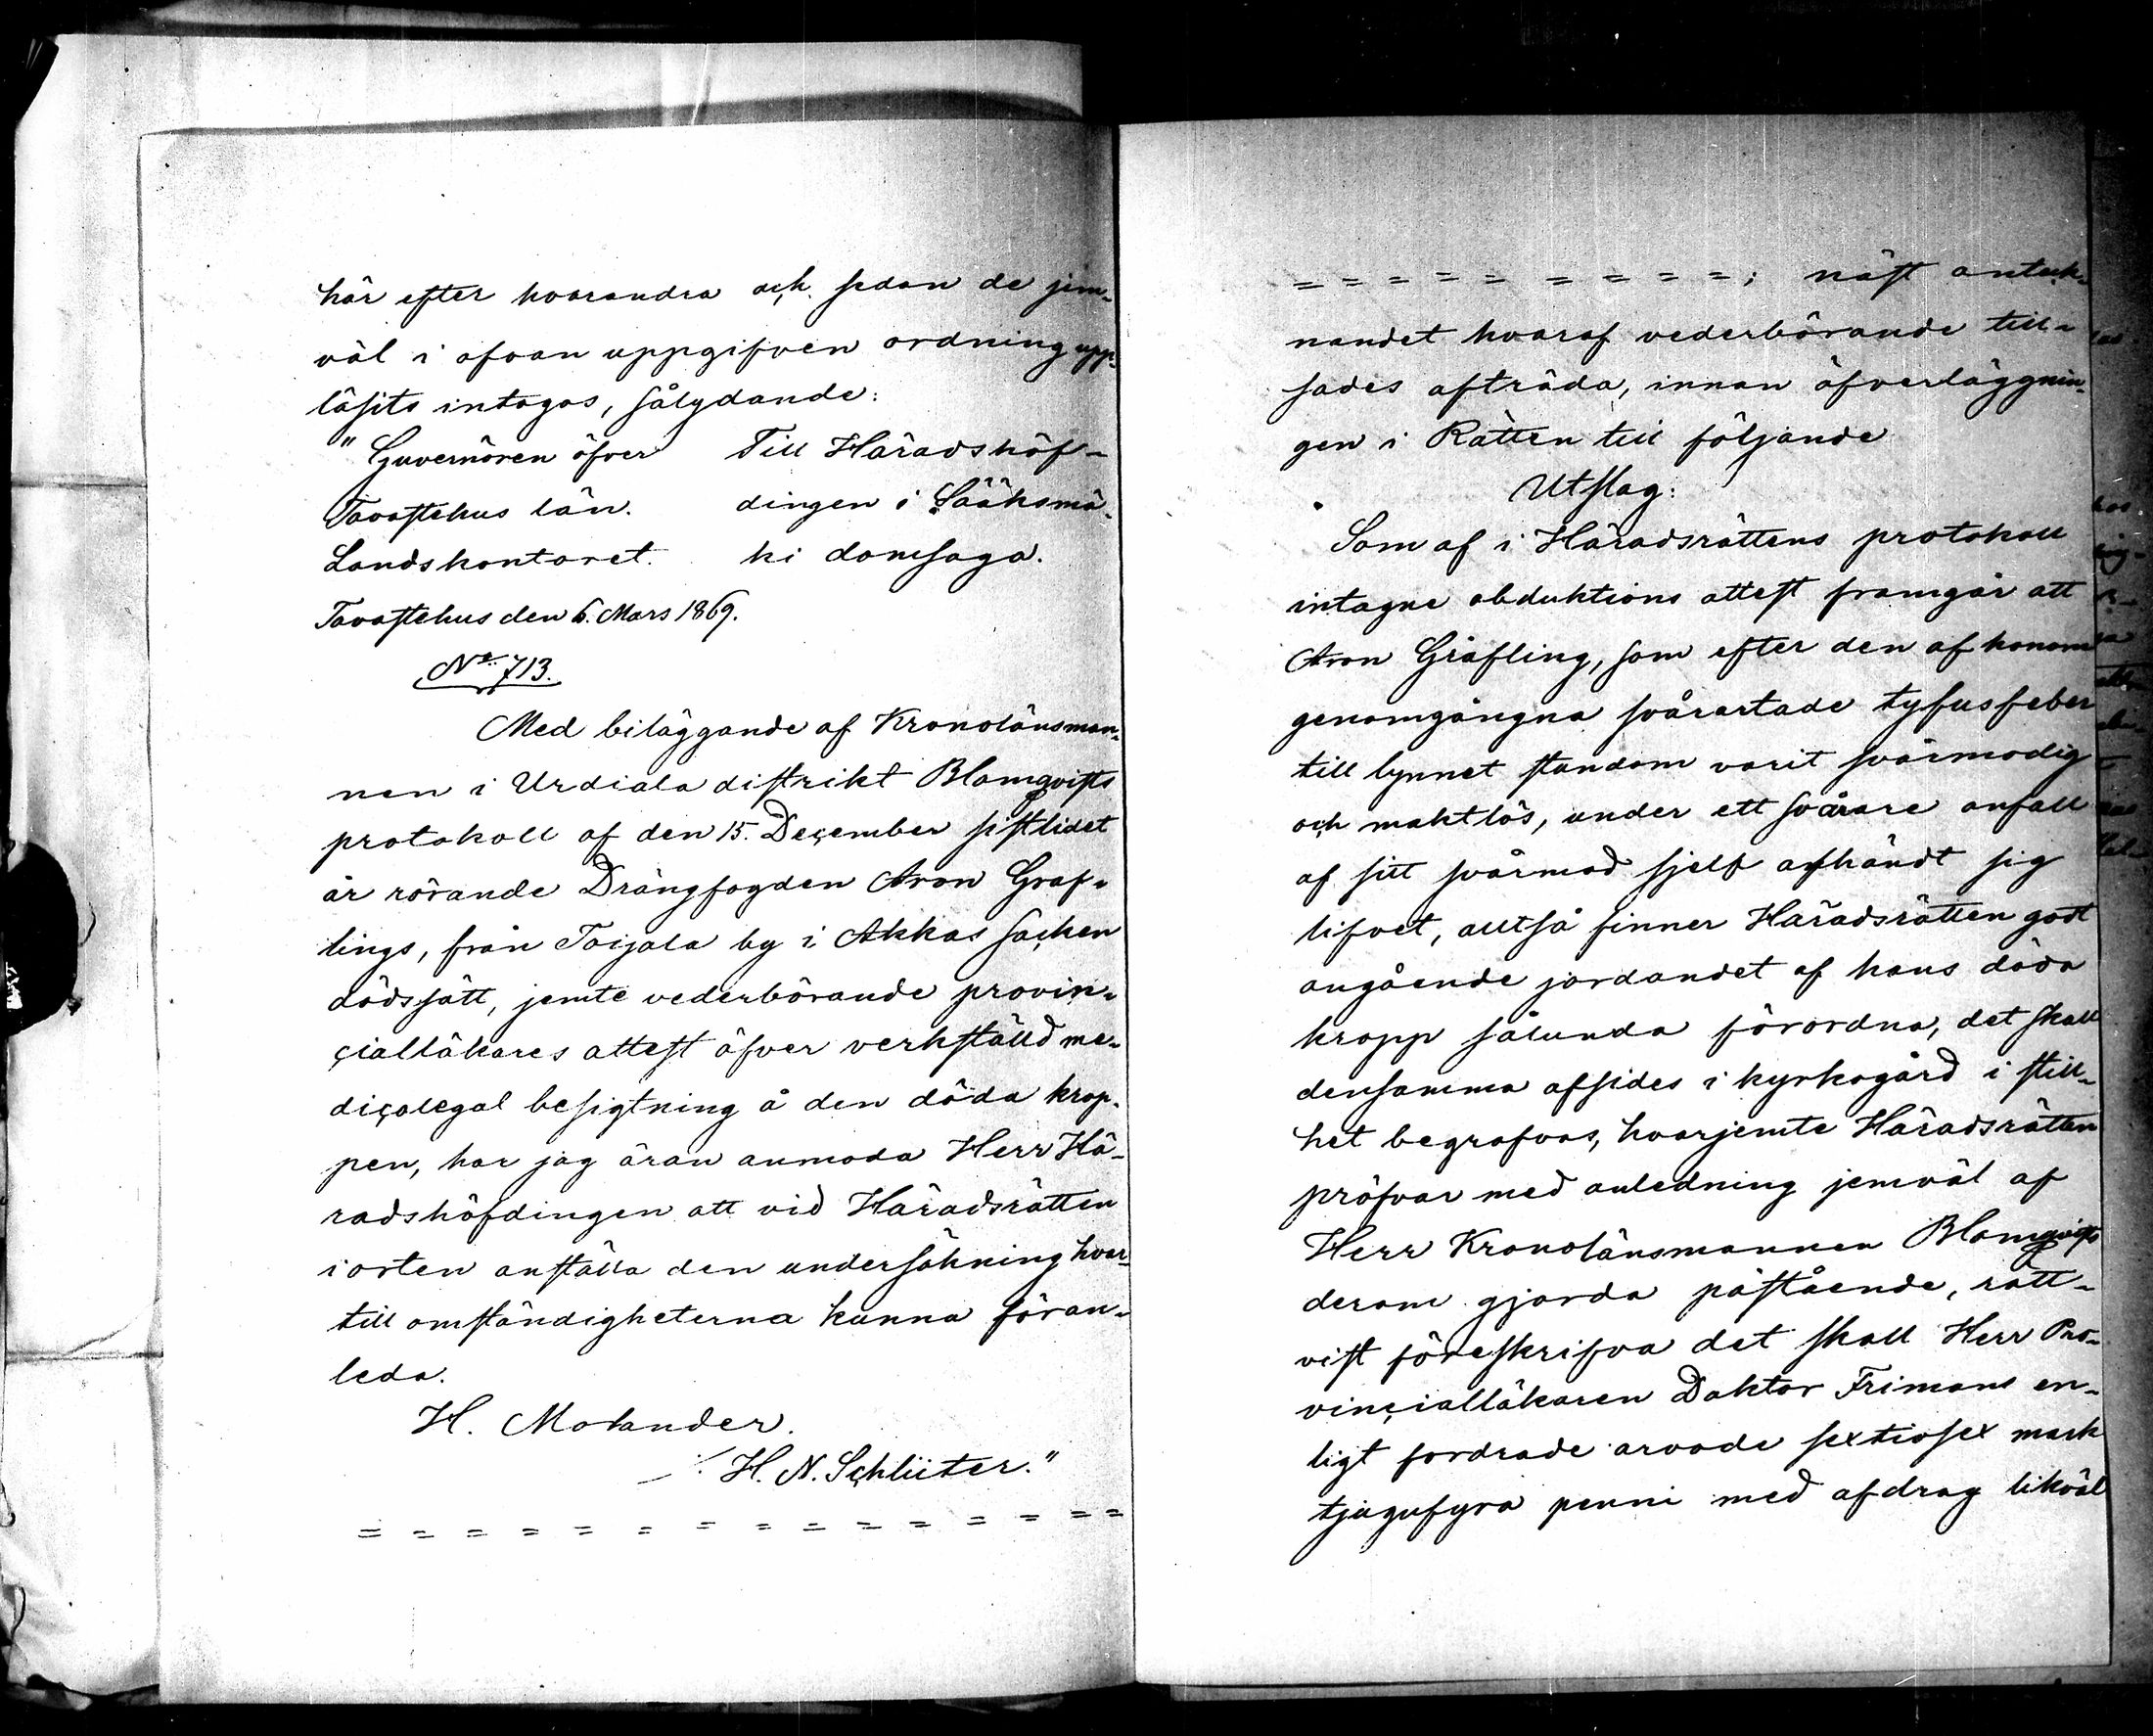 här efter hvarandra och sedan de jem-
väl i ofvan uppgifven ordning upp-
läsits intagas, sålydande:
"Guvernören öfver Till Häradshöf-
Tavastehus län. dingen i Sääksmä-
Landskontoret. ki domsaga.
Tavastehus den 6. Mars 1869.
No 713.
Med biläggande af Kronolänsman-
nen i Urdiala distrikt Blomqvists
protokoll af den 15. December sistlidet
år rörande Drängfogden Aron Gräf-
lings, från Toijala by i Akkas socken
dödssätt, jemte vederbörande provin-
cialläkares attest öfver verkställd me-
dicolegal besigtning å den döda krop-
pen, har jag äran anmoda Herr Hä-
radshöfdingen att vid Häradsrätten
i orten anställa den undersökning hvar-
till omständigheterna kunna föran-
leda.
H. Molander.
H. N. Schlüter."
= = = = = = = = = = = = = =
= = = = = = = = = =; näst anteck-
nandet hvaraf vederbörande till-
sades afträda, innan öfverläggnin-
gen i Rätten till följande
Utslag:
Som af i Häradsrättens protokoll
intagne obduktions attest framgår att
Aron Gräfling, som efter den af honom
genomgångna svårartade tyfusfeber
till lynnet stundom varit svårmodig
och maktlös, under ett svårare anfall
af sitt svårmod sjelf afhändt sig
lifvet, alltså finner Häradsrätten godt
angående jordandet af hans döda
kropp sålunda förordna, det skall
densamma afsides i kyrkogård i still-
het begrafvas, hvarjemte Häradsrätten
pröfvar med anledning jemväl af
Herr Kronolänsmannen Blomqvists
derom gjorda påstående, rätt-
vist föreskrifva det skall Herr Pro-
vincialläkaren Doktor Frimans en-
ligt fordrade arvode sextiosex mark
tjugufyra penni med afdrag likväl